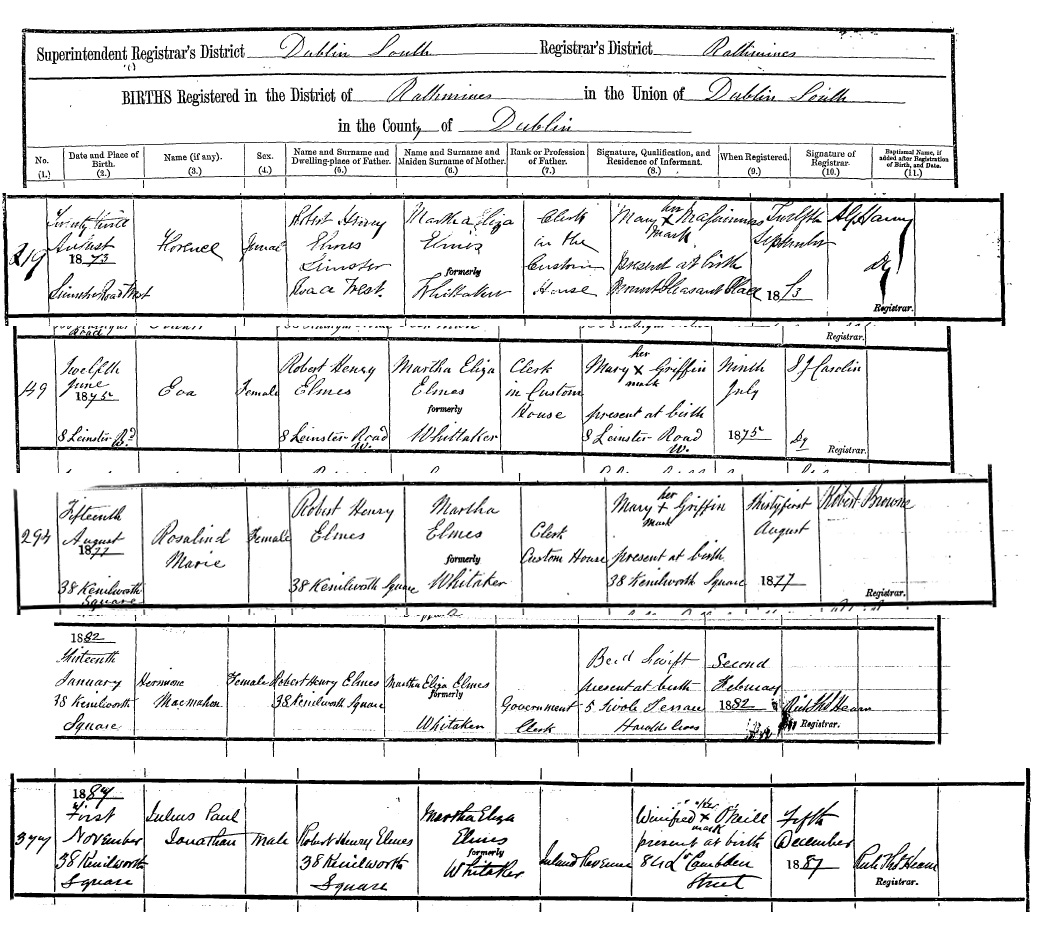 Superintendent Registrar's District Dublin South Registrar's District Rathmines
BIRTHS Registered in the District of Rathmines in the Union of Dublin South
in the County of Dublin
No. (1.) Date and Place of Birth. (2.) Name (if any). (3.) Sex. (4.) Name and Surname and Dwelling-place of Father. (5.) Name and Surname and Maiden Surname of Mother. (6.) Rank or Profession of Father. (7.) Signature, Qualification, and Residence of Informant. (8.) When Registered. (9.) Signature of Registrar. (10.) Baptismal Name, if added after Registration of Birth, and Date. (11.)
219
August
1873
Leinster Road West
Florence
Female
Robert Henry
Elmes
Leinster
Road West.
Martha Eliza
Elmes
formerly
Whittaker
Clerk
in the
Custom
House
Mary her x mark
present at birth
Mount Pleasant Place
Twelfth
September
1873
Registrar.
Road
Registrar.
49
Twelfth
June
1875
8 Leinster Rd
W.
Eva
Female
Robert Henry
Elmes
8 Leinster Road
W.
Martha Eliza
Elmes
formerly
Whittaker
Clerk
in Custom
House
her
Mary x Griffin
mark
present at birth
8 Leinster Road
W.
Ninth
July
1875
Registrar.
294
Fifteenth
August
1877
38 Kenilworth
Square
Rosalind
Marie
Female
Robert Henry
Elmes
38 Kenilworth Square
Martha
Elmes
formerly
Whitaker
Clerk
Custom House
her
Mary + Griffin
mark
present at birth
38 Kenilworth Square
Thirtyfirst
August
1877
Robert Browne
Registrar.
1882
Thirteenth
January
38 Kenilworth
Square
Hermione
Macmahon
Female
Robert Henry Elmes
38 Kenilworth Square
Martha Eliza Elmes
formerly
Whitaker
Government
Clerk
Swift
present at birth
5 Terrace
Harolds Cross
Second
February
1882
Registrar.
377
1887
First
November
38 Kenilworth
Square
Julius Paul
Jonathan
Male
Robert Henry Elmes
38 Kenilworth
Square
Martha Eliza
Elmes
formerly
Whitaker
Inland Revenue
her
Winifred x O'Neill
mark
present at birth
Cambden
Street
Fifth
December
1887
Registrar.